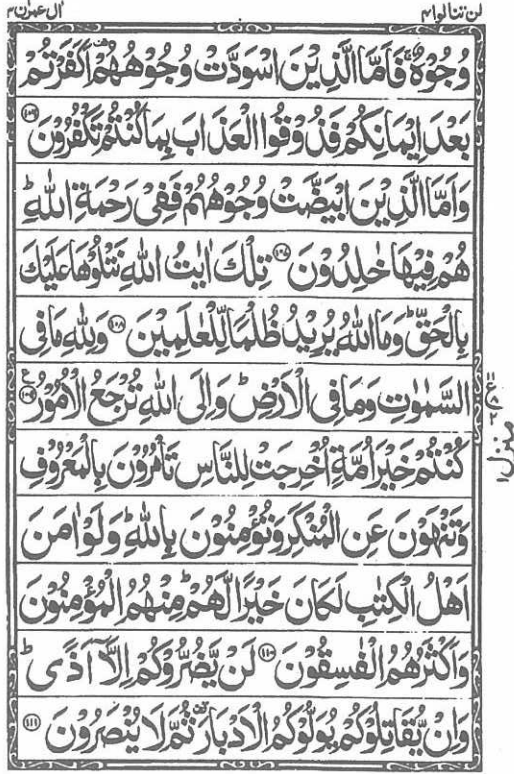 لن تنالوا ٤ اٰل عمرٰن ٣
وُجُوْهٌ ۚ فَاَمَّا الَّذِيْنَ اسْوَدَّتْ وُجُوْهُهُمْ ۫ اَكَفَرْتُمْ
بَعْدَ اِيْمَانِكُمْ فَذُوْقُوا الْعَذَابَ بِمَا كُنْتُمْ تَكْفُرُوْنَ ﴿١٠٦﴾
وَاَمَّا الَّذِيْنَ ابْيَضَّتْ وُجُوْهُهُمْ فَفِيْ رَحْمَةِ اللّٰهِ ؕ
هُمْ فِيْهَا خٰلِدُوْنَ ﴿١٠٧﴾ تِلْكَ اٰيٰتُ اللّٰهِ نَتْلُوْهَا عَلَيْكَ
بِالْحَقِّ ؕ وَمَا اللّٰهُ يُرِيْدُ ظُلْمًا لِّلْعٰلَمِيْنَ ﴿١٠٨﴾ وَلِلّٰهِ مَا فِي
السَّمٰوٰتِ وَمَا فِي الْاَرْضِ ؕ وَاِلَى اللّٰهِ تُرْجَعُ الْاُمُوْرُ ﴿١٠٩﴾ ع
كُنْتُمْ خَيْرَ اُمَّةٍ اُخْرِجَتْ لِلنَّاسِ تَاْمُرُوْنَ بِالْمَعْرُوْفِ
وَتَنْهَوْنَ عَنِ الْمُنْكَرِ وَتُؤْمِنُوْنَ بِاللّٰهِ ؕ وَلَوْ اٰمَنَ
اَهْلُ الْكِتٰبِ لَكَانَ خَيْرًا لَّهُمْ ؕ مِنْهُمُ الْمُؤْمِنُوْنَ
وَاَكْثَرُهُمُ الْفٰسِقُوْنَ ﴿١١٠﴾ لَنْ يَّضُرُّوْكُمْ اِلَّاۤ اَذًى ؕ
وَاِنْ يُّقَاتِلُوْكُمْ يُوَلُّوْكُمُ الْاَدْبَارَ ۫ ثُمَّ لَا يُنْصَرُوْنَ ﴿١١١﴾
منزل ١